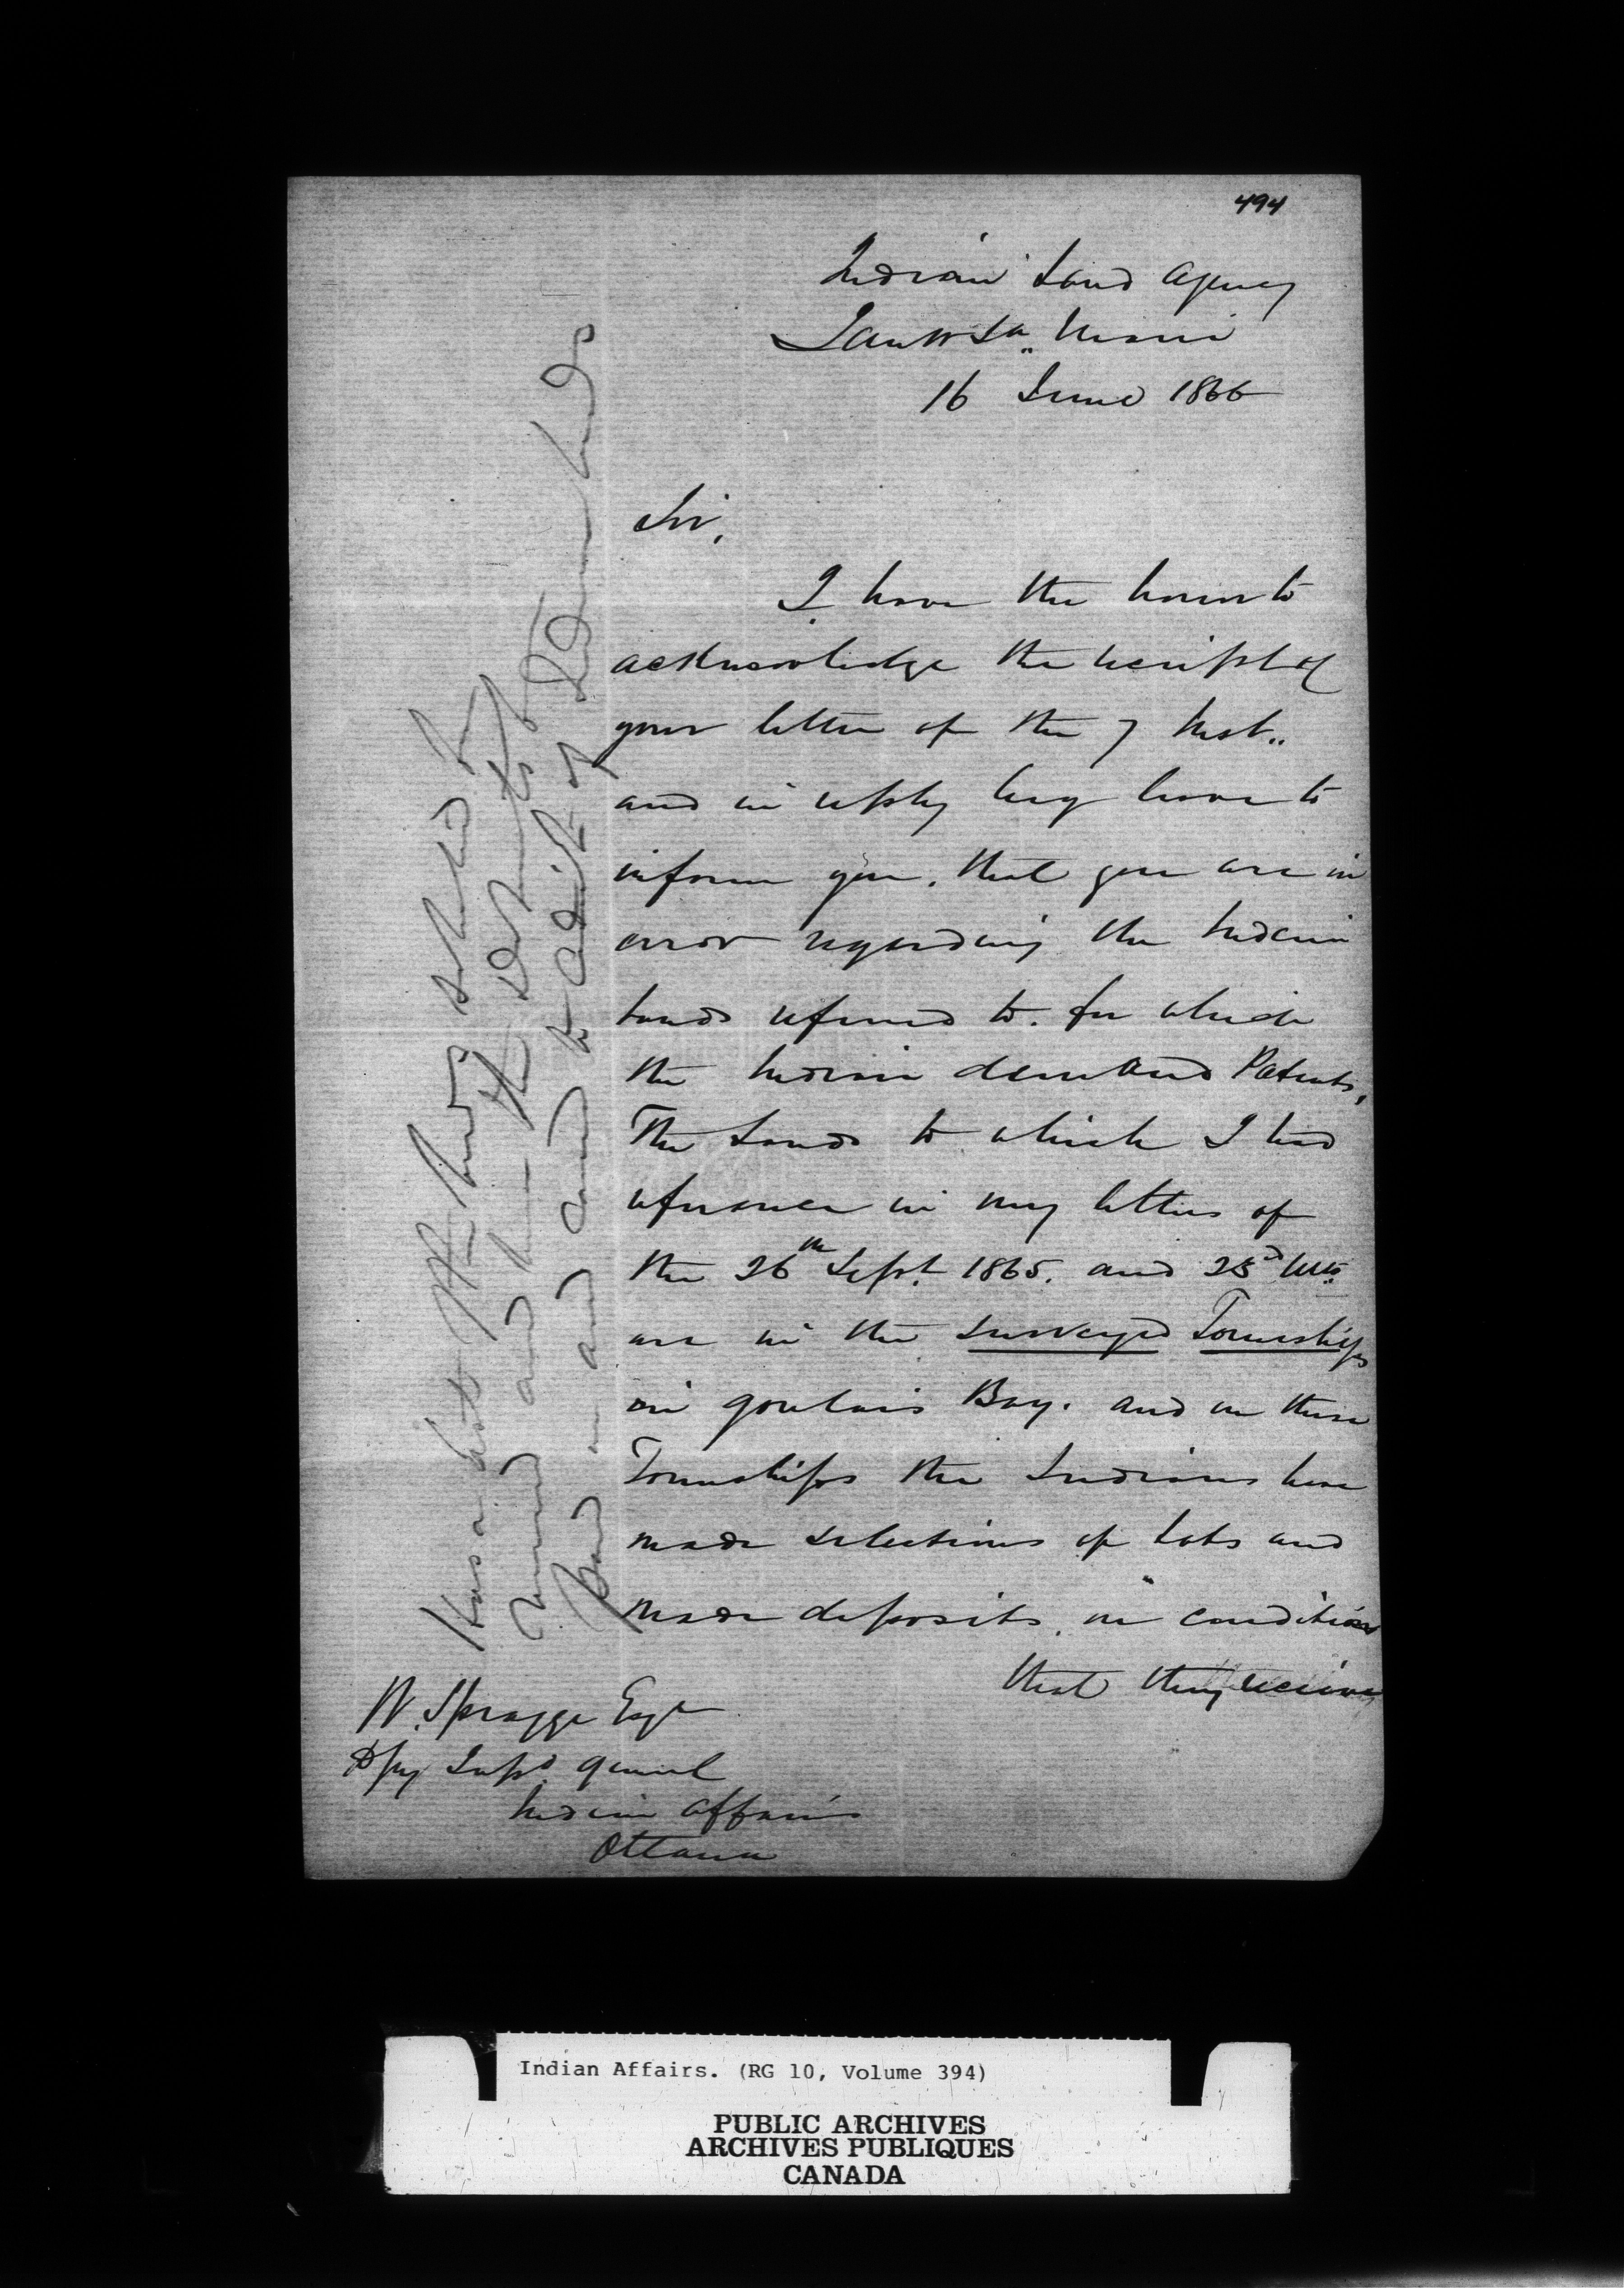 494
Indian Land Agency
Sault Ste. Marie
16 June 1866
Sir,
I have the honor to
acknowledge the receipt of
your letter of the 7 Inst..
and in reply beg leave to
inform you, that you are in
error regarding the Indian
lands referred to. for which
the Indian demand Patents,
The Lands to which I had
reference in my letters of
the 26th Sept. 1865. and 23d Ulto
are in the surveyed Townships
in Goulais Bay. and in these
Townships the Indians have
made selections of Lots and
made deposits, on conditions
that they receive
W. Spragge Esqr
Dpy Supt General
Indian Affairs
Ottawa
Has a list been
and the
and to of
Indian Affairs. (RG 10, Volume 394)
PUBLIC ARCHIVES
ARCHIVES PUBLIQUES
CANADA